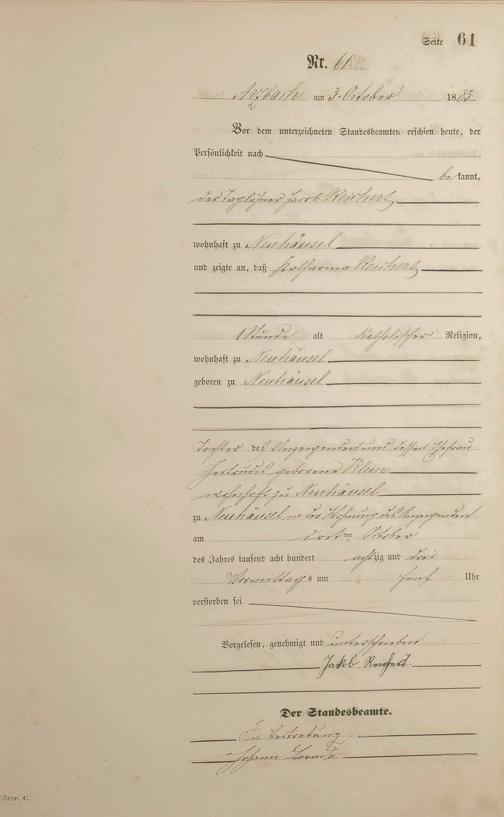 Seite 61
Nr. 61.
Arzbach am 3. October 1883.
Vor dem unterzeichneten Standesbeamten erschien heute, der
Persönlichkeit nach
be kannt,
der Taglöhner Jacob Reichert
wohnhaft zu Neuhäusel
und zeigte an, daß Katharina Reichert
1 Stunde alt katholischer Religion,
wohnhaft zu Neuhäusel
geboren zu Neuhäusel
Tochter des Anzeigenden und dessen Ehefrau
Gertrud geborene Klein
wohnhaft zu Neuhäusel
zu Neuhäusel in der Wohnung des Anzeigenden
am dritten October
des Jahres tausend acht hundert achtzig und drei
Vormittags um fünf Uhr
verstorben sei
Vorgelesen, genehmigt und unterschrieben
Jakob Reichert
Der Standesbeamte.
In Vertretung
Johann
Form. C.